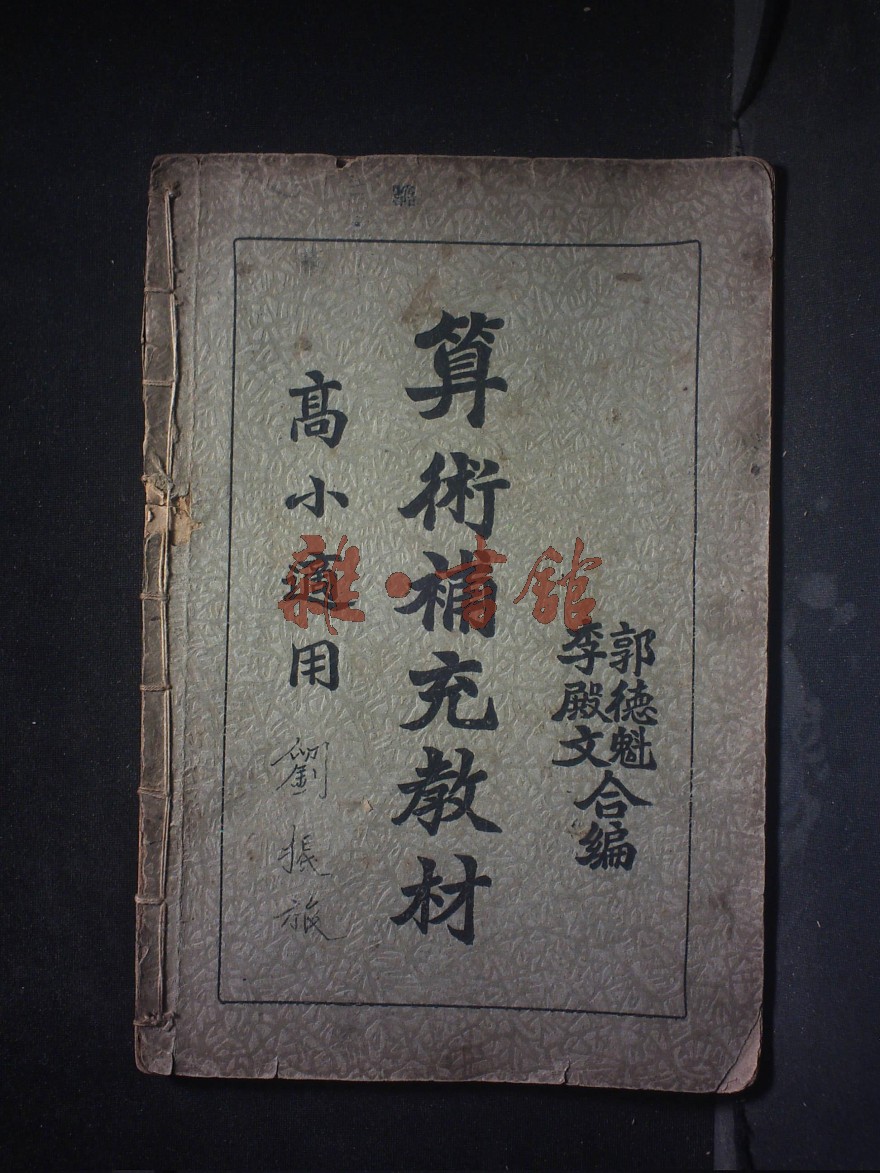 郭德魁
李殿文
合編
算術補充教材
高小適用
劉振旅
雜·書館